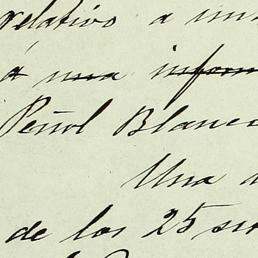 relativo a un
a una inform
Peñol Blanco
Una
de los 25